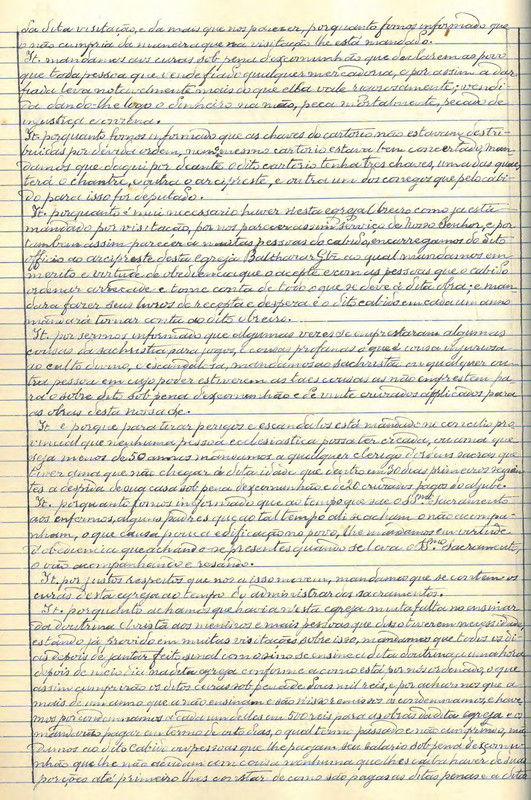 da dita visitação, e da mais que nos parecer, porquanto fomos informado que
o não cumpria da maneira que na visitação lhe está mandado.
It. mandamos aos curas sob pena de excomunhão que declarem ao povo
que toda pessoa que vende fiado qualquer mercadoria, e por assim a dar
fiada leva notavelmente mais do que ella vale rigorosamente; vendi
da dando-lhe logo o dinheiro na mão, peca mortalmente, pecado de
injustiça e onzena.
It. porquanto fomos informado que as chaves do cartorio não estavam destri
buidas por devida ordem, nem o mesmo cartorio estava bem concertado, man
damos que daqui por deante o dito cartorio tenha tres chaves, uma das quaes
terá o chantre, e outra o arcipreste, e outra um dos conegos que pelo cabi
do para isso for deputado.
It. porquanto é mui necessario haver nesta egreja obreiro como ja está
mandado por visitação, por nos parecer assim serviço de Nosso Senhor, e por
tambem assim parecer a muitas pessoas do cabido, encarregamos do dito
officio ao arcipreste desta Egreja Balthazar Glz ao qual mandamos em
merito e virtude de obediencia que o acepte e com as pessoas que o cabido
ordenar arrecade e tome conta de todo o que se deve á dita obra; e man
dara fazer seus livros de recepta e despeza e o dito cabido em cada um anno
mandará tomar conta ao dito obreiro.
It. por sermos informado que algumas vezes se emprestaram algumas
cousas da sachristia para jogos, e cousas profanas o que é cousa injuriosa
ao culto divino, e escandalosa, mandamos ao sachristão ou qualquer ou
tra pessoa em cujo poder estiverem as taes cousas as não emprestem pa
ra o sobre dito sob pena de excomunhão e de vinte cruzados applicados para
as obras desta nossa sé.
It. e porque para tirar perigos e escandalos está mandado no concilio pro
vincial que nenhuma pessoa ecclesiastica possa ter creada, ou ama que
seja menos de 50 annos mandamos a qualquer clerigo de ordens sacras que
tiver ama que não chegar á dita idade que dentro em 30 dias primeiros seguin
tes a despida de sua casa sob pena de excomunhão e de 20 cruzados pagos do aljube.
It. porquanto fomos informado que ao tempo que sae o S.mo Sacramento
aos enfermos, alguns padres que ao tal tempo ali se acham o não acompa
nham, o que causa pouca edificação no povo, lhe mandamos em virtude
de obediencia que achando-se presentes quando se leva o S.mo Sacramento,
o vão acompanhando e rezando.
It. por justos respeitos que nos a isso movem, mandamos que se contem os
curas desta egreja ao tempo do administrar dos sacramentos.
It. porquanto achamos que havia nesta egreja muita falta no ensinar
da doutrina christã aos meninos e mais pessoas que disso tiverem necessidade,
estando já provido em muitas visitações sobre isso, mandamos que todos os di
as depois de jantar feito sinal com o sino se ensine a dita doutrina, uma hora
depois de meio dia na dita egreja conforme a como está por nós ordenado, o que
assim cumprirão os ditos curas sob pena de dous mil reis, e por acharmos que a
mais de um anno que a não ensinam e são nisso remissos os condemnamos, e have
mos por condemnamos a cada um delles em 500 reis para as obras da dita egreja e os
mandarão pagar em termo de oito dias, o qual termo passado e não cumprindo, man
damos ao dito cabido ou pessoas que lhe pagam seu salario sob pena de excomu
nhão que lhe não acudam com cousa nenhuma que lhes caiba haver de suas
porções até primeiro lhes constar de como são pagas as ditas penas e a ditas